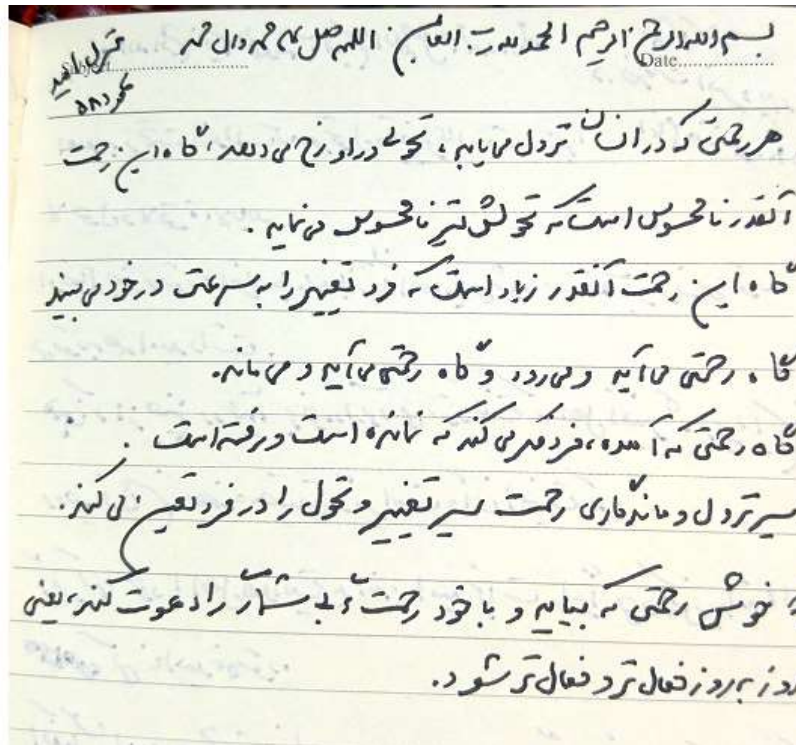 بسم الله الرحمن الرحیم الحمدلله رب العالمین اللهم صل علی محمد وال محمد
Date
هر رحمتی که در انسان نزول می‌یابد، تحولی در او رخ می‌دهد، گاه این رحمت
آنقدر نامحسوس است که تحولش نیز نامحسوس می‌نماید.
گاه این رحمت آنقدر زیاد است که فرد تغییر را به سرعتی در خود می‌بیند
گاه رحمتی می‌آید و می‌رود و گاه رحمتی می‌آید و می‌ماند.
گاه رحمتی که آمده، فرد فکر می‌کند که نمانده است و رفته است.
سیر نزول و ماندگاری رحمت سیر تغییر و تحول را در فرد تعیین می‌کند.
خوش رحمتی که بیاید و با خود رحمت‌ بی شمار را دعوت کند، یعنی
روز به روز فعال تر و فعال تر شود.